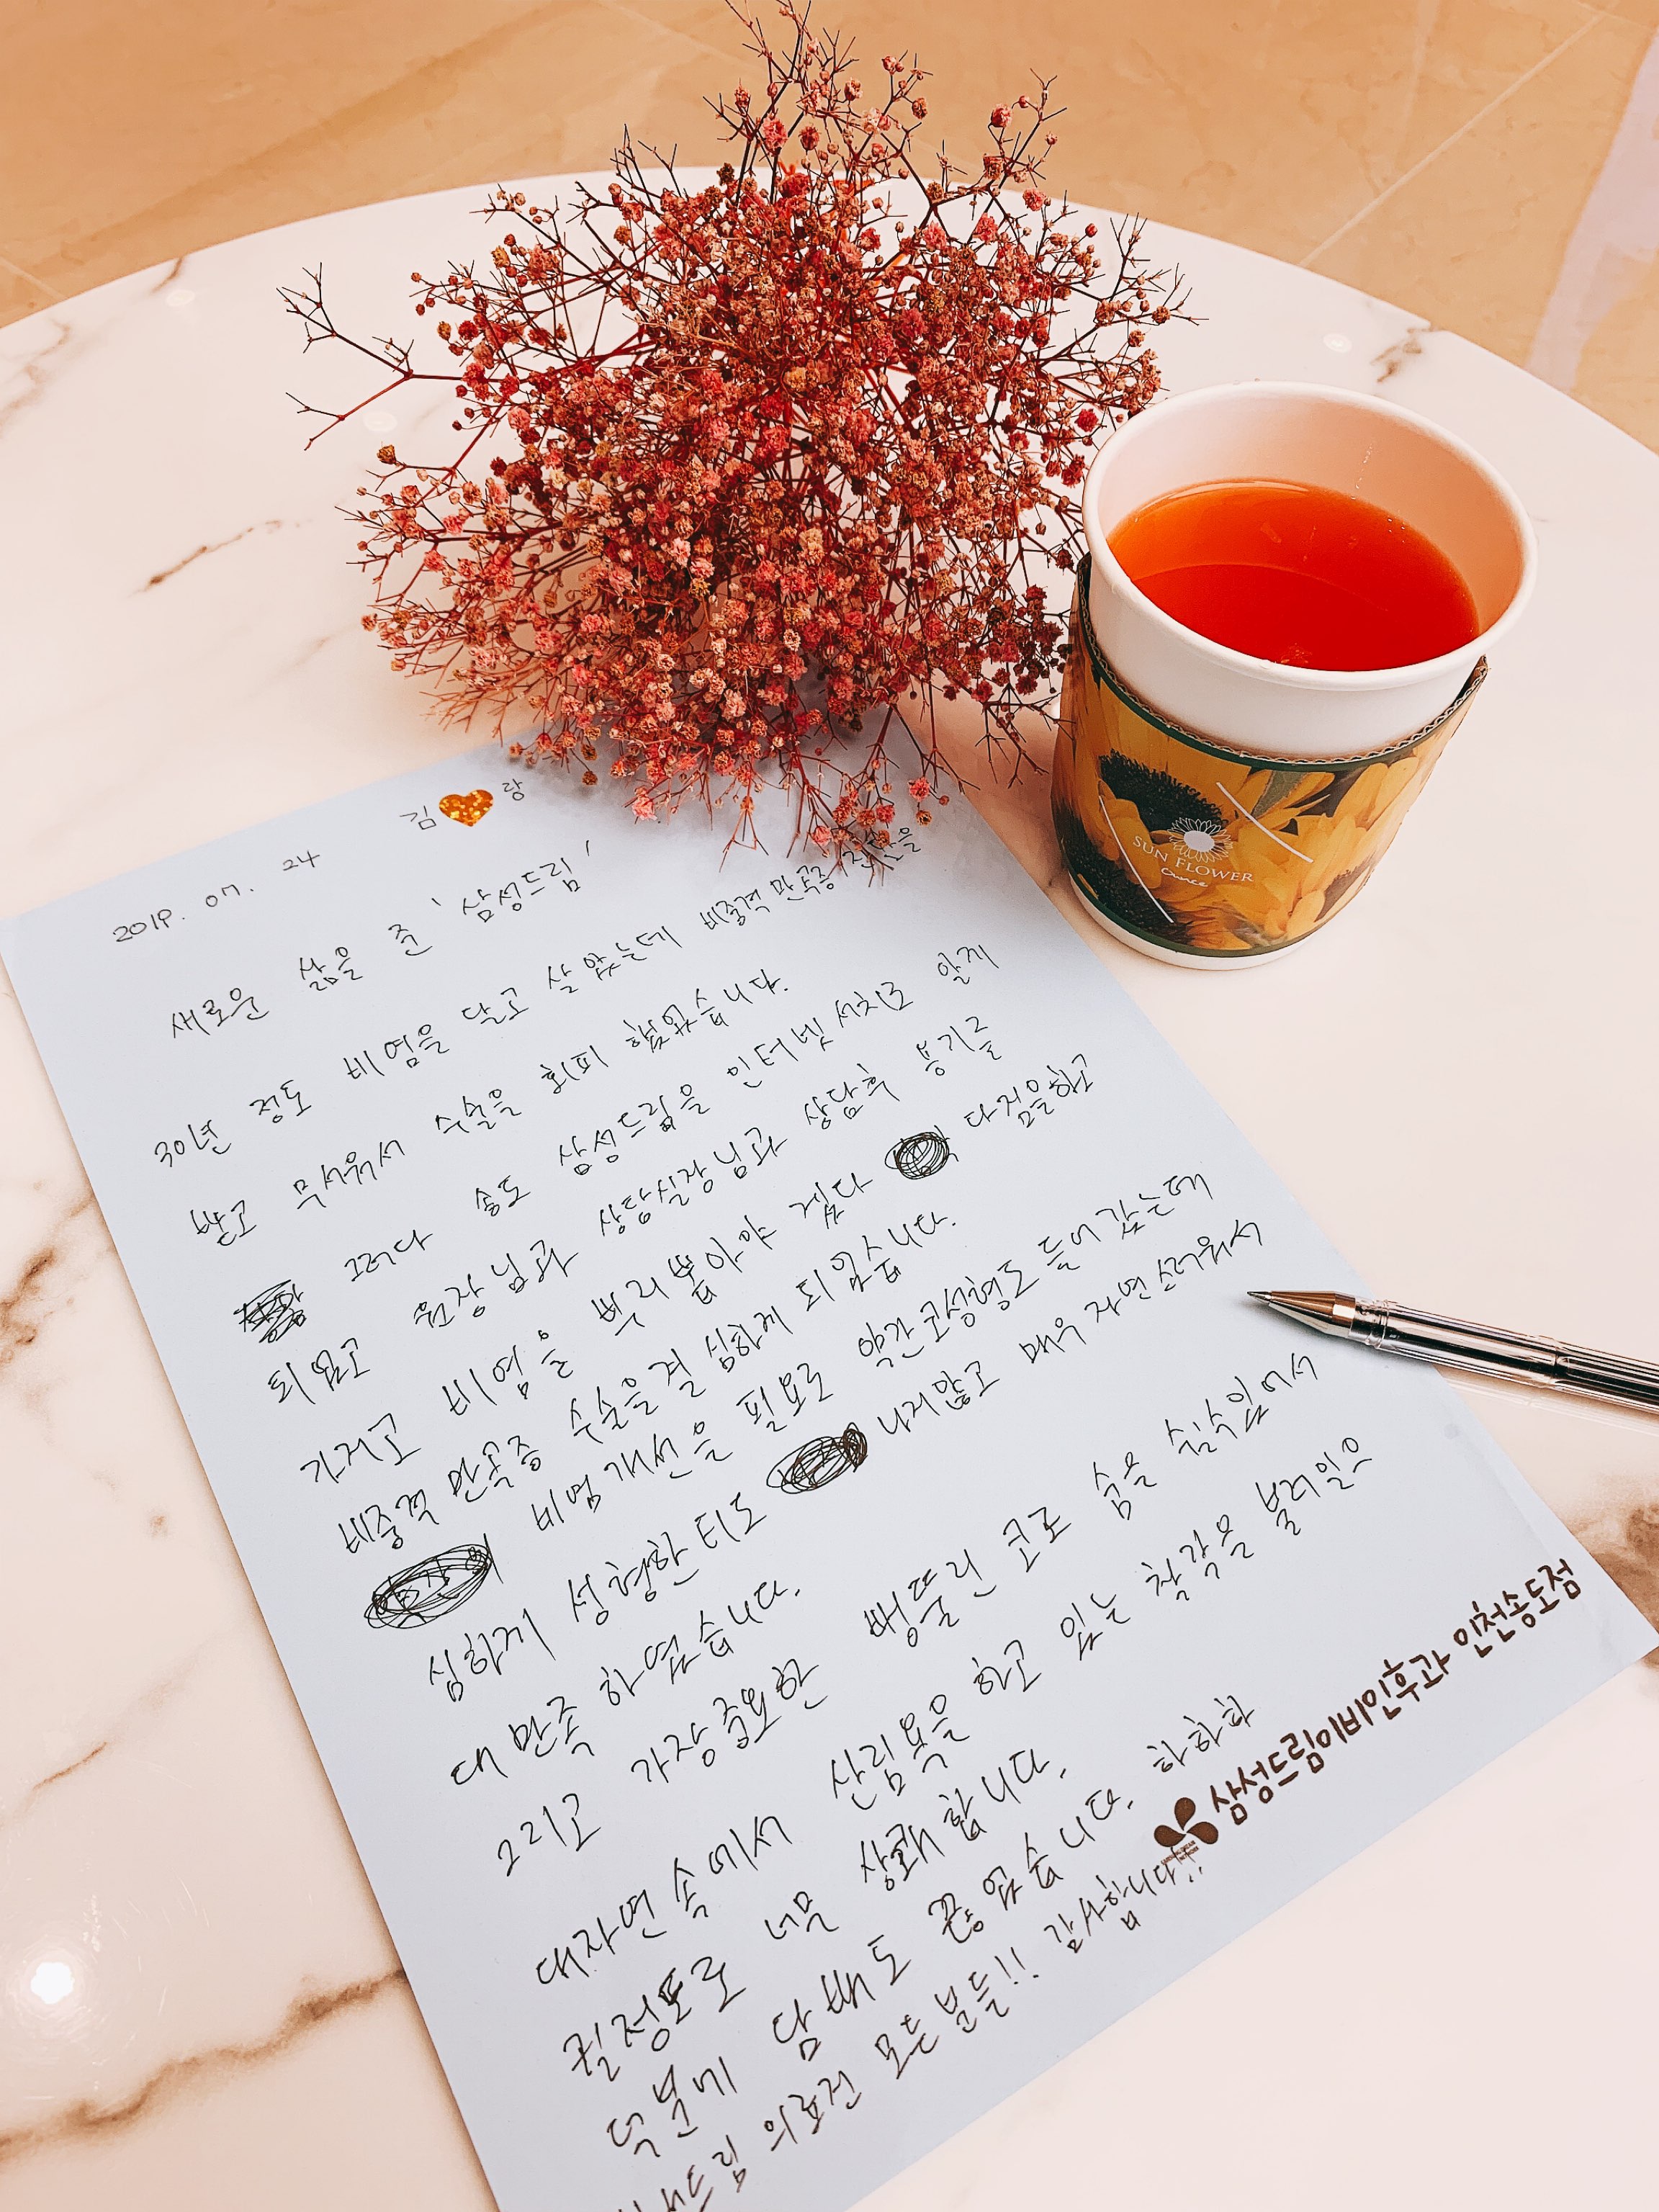 2019. 07. 24
김 랑
새로운 삶을 준 '삼성드림'
30년 정도 비염을 달고 살았는데 비중격 만곡증 진단을
받고 무서워서 수술을 회피 했었습니다.
그러다 송도 삼성드림을 인터넷 서치로 알게
되었고 원장님과 상담실장님과 상담후 용기를
가지고 비염을 뿌리뽑아야 겠다 다짐을하고
비중격 만곡증 수술을 결심하게 되었습니다.
비염개선을 필요로 약간 코성형도 들어갔는데
심하게 성형한 티도 나지않고 매우 자연스러워서
대만족 하였습니다.
그리고 가장 중요한 뻥뚤린 코로 숨을 쉴수있어서
대자연 속에서 산림욕을 하고 있는 착각을 불러일으
킬정도로 너무 상쾌합니다.
덕분에 담배도 끊었습니다. 하하하
드림 의료진 모든 분들!! 감사합니다!!
삼성드림이비인후과 인천송도점
SUN FLOWER